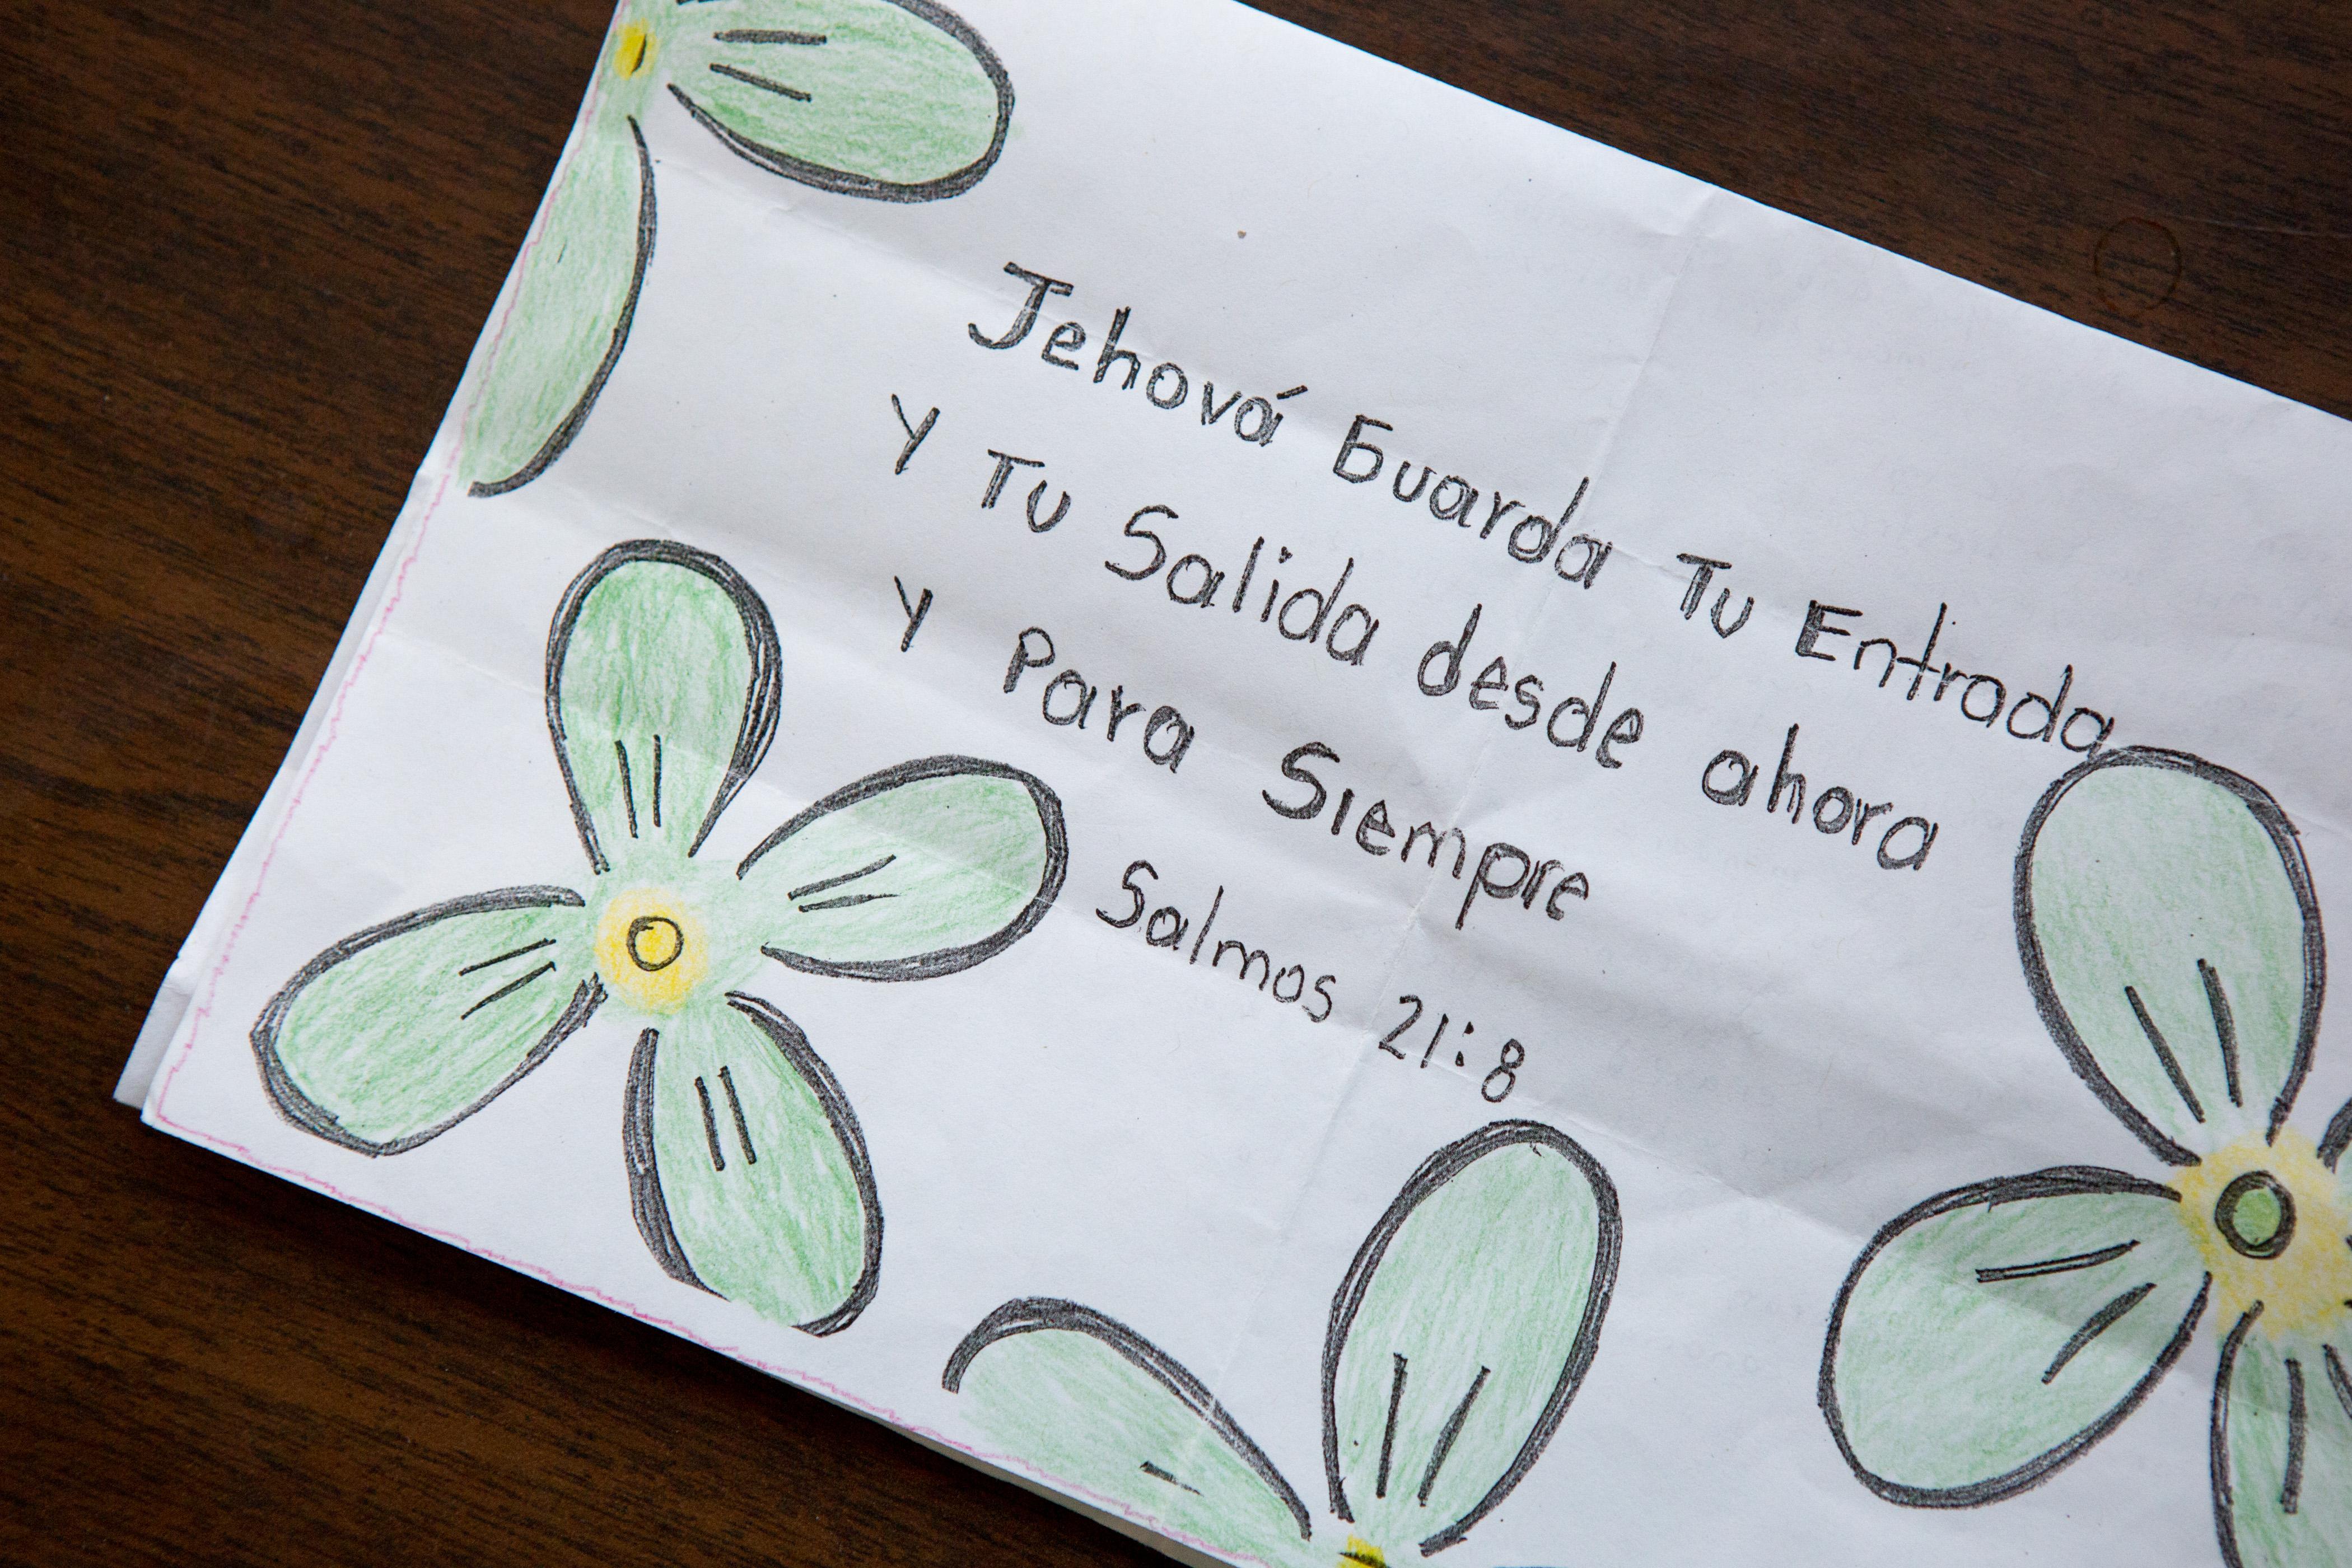 Jehová Guarda Tu Entrada
Y Tu Salida desde ahora
Y Para Siempre
Salmos 21:8